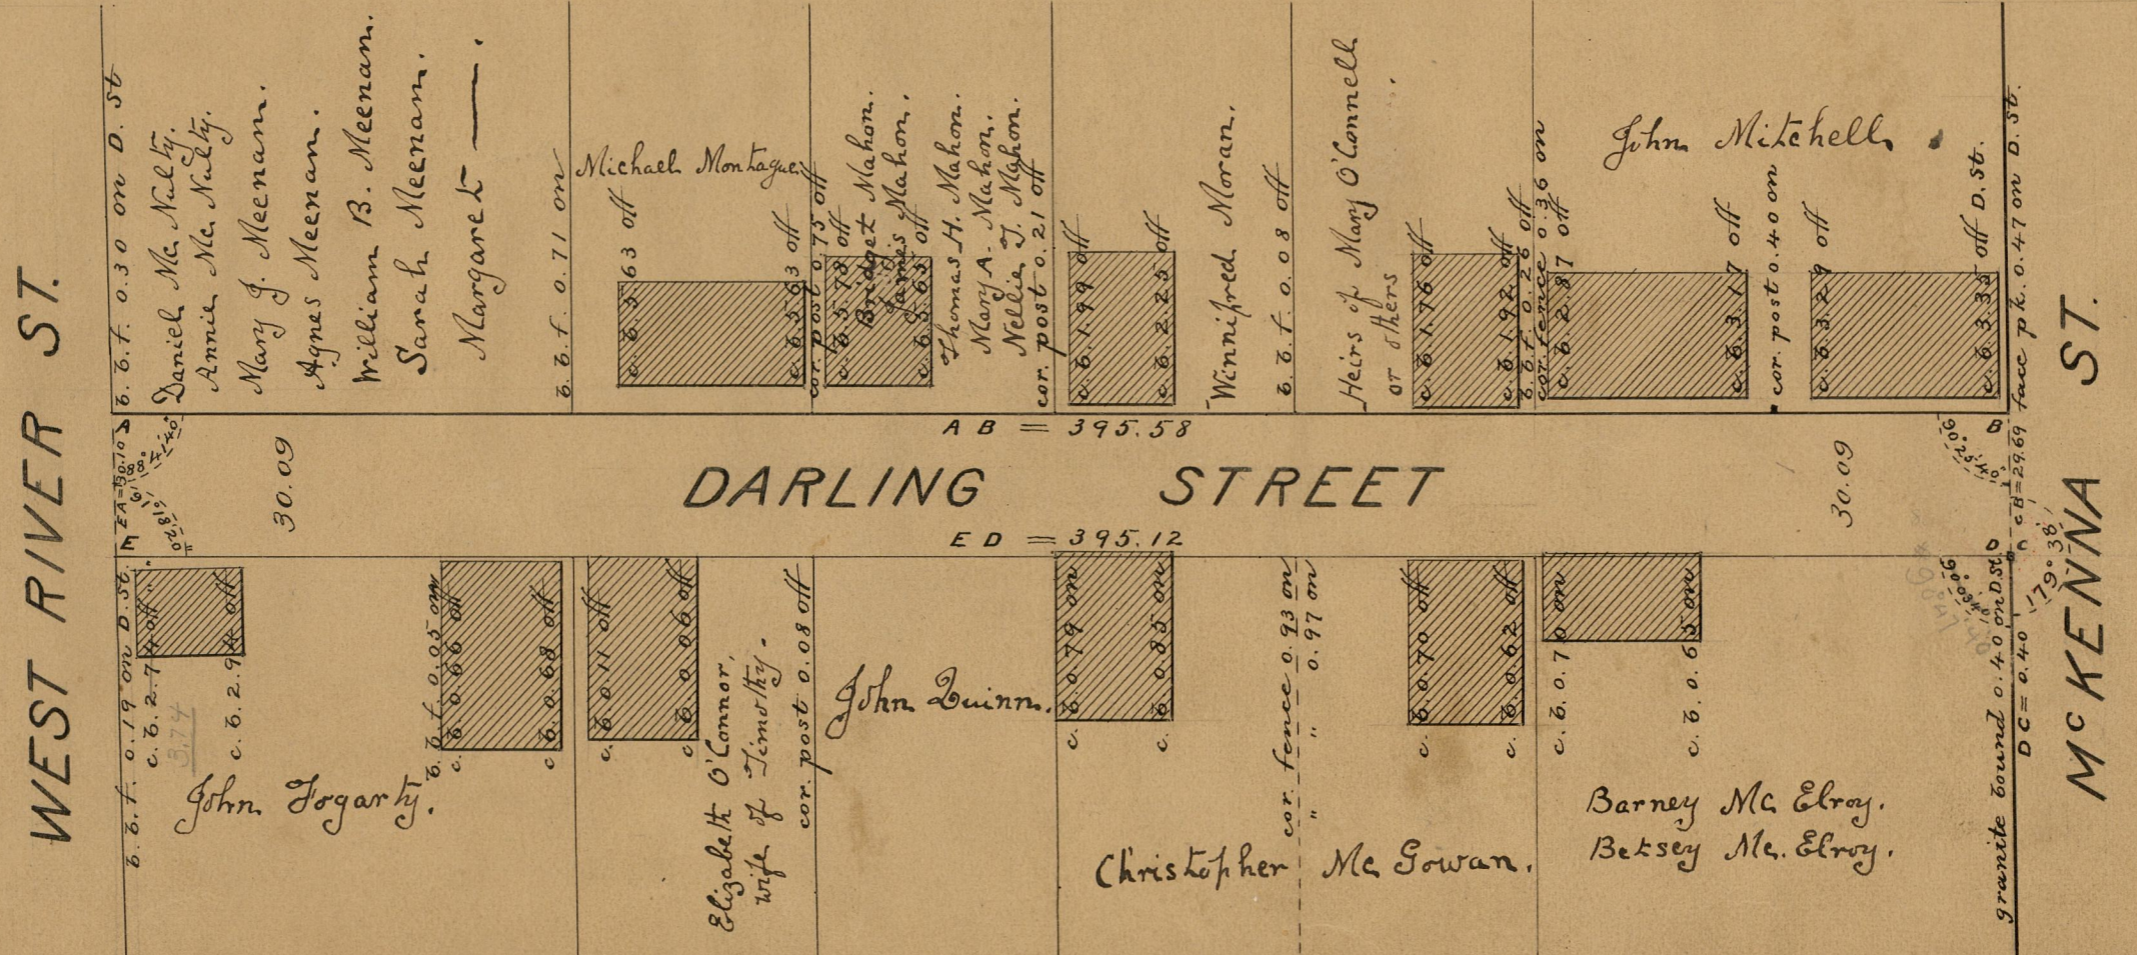 WEST RIVER ST.
b. b. f. 0.30 on D. St
Daniel Mc. Nulty.
Annie Mc. Nulty.
Mary J. Meenan.
Agnes Meenan.
William B. Meenan.
Sarah Meenan.
Margaret —.
b. b. f. 0.71 on
Michael Montague
c. b. 5.63 off
c. b. 5.63 off
cor. post 0.75 off
c. b. 5.78 off
Bridget Mahon.
James Mahon.
c. b. 5.65 off
Thomas H. Mahon.
Mary A. Mahon.
Nellie T. Mahon.
cor. post 0.21 off
c. b. 1.99 off
c. b. 2.25 off
Winnifred Moran.
b. b. f. 0.08 off
Heirs of Mary O'Connell
or others
c. b. 1.76 off
c. b. 1.92 off
b. b. f. 0.26 off
cor. fence 0.36 on
c. b. 2.87 off
John Mitchell
c. b. 3.17 off
cor. post 0.40 on
c. b. 3.29 off
c. b. 3.35 off D. St.
face pk. 0.47 on D. St.
A B = 395.58
A
B
EA = 30.10
30.09
DARLING STREET
30.09
CB = 29.69
E D = 395.12
E
D
C
179° 38'
DC = 0.40
McKENNA ST.
b. b. f. 0.19 on D. St.
c. b. 2.74 off " "
3.74
c. b. 2.94 off
John Fogarty.
b. b. f. 0.05 on
c. b. 0.66 off
c. b. 0.68 off
c. b. 0.11 off
c. b. 0.06 off
Elizabeth O'Connor,
wife of Timothy.
cor. post 0.08 off
John Quinn.
c. b. 0.79 on
c. b. 0.85 on
cor. fence 0.93 on
" " 0.97 on
Christopher Mc Gowan.
c. b. 0.70 off
c. b. 0.62 off
c. b. 0.70 on
c. b. 0.65 on
Barney Mc Elroy.
Betsey Mc. Elroy.
granite bound 0.40 on D St.